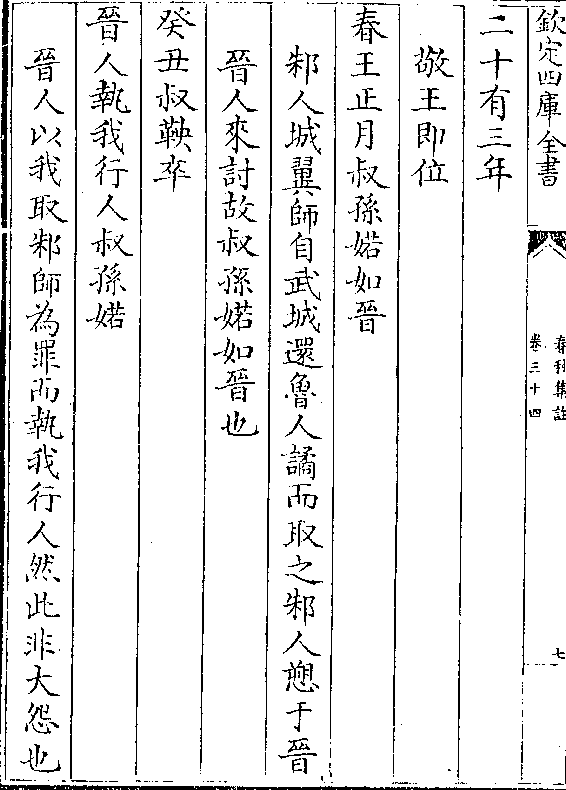 欽定四庫全書
春秋集註
卷三十四
七
二十有三年
敬王即位
春王正月叔孫婼如晉
邾人城翼師自武城還魯人譎而取之邾人愬于晉
晉人來討故叔孫婼如晉也
癸丑叔鞅卒
晉人執我行人叔孫婼
晉人以我取邾師為罪而執我行人然此非大怨也